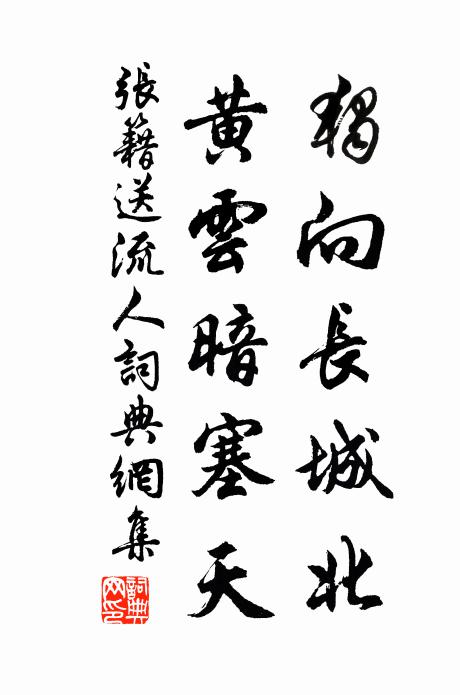 獨向長城北
黃雲暗塞天
張籍送流人詞典網集
詞典网印